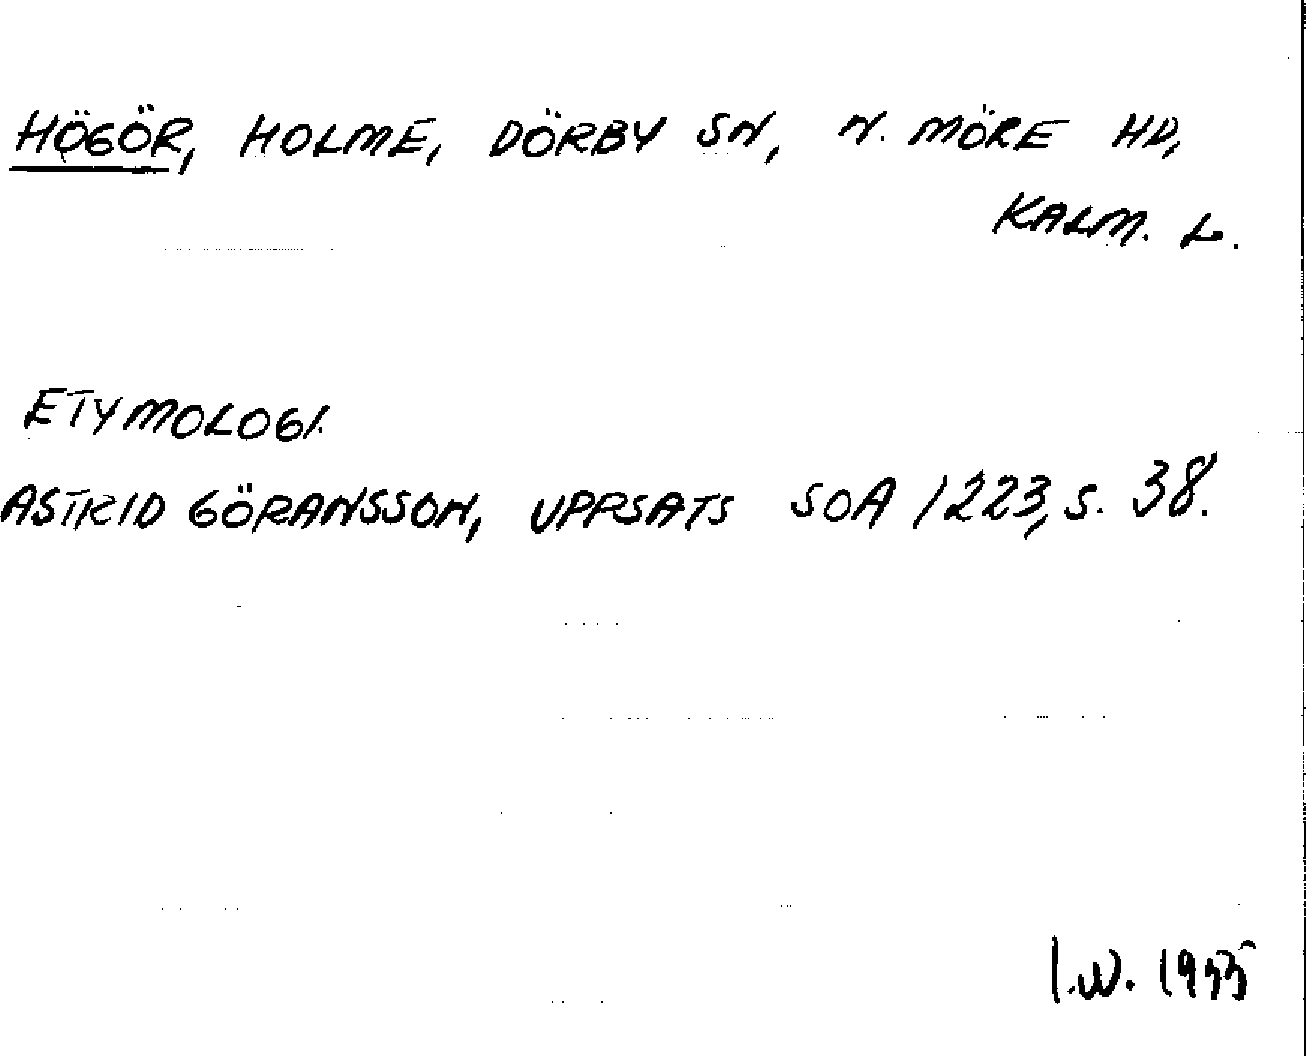 HÖGÖR, HOLME, DÖRBY SN, N. MÖRE HD,
KALM. L.
ETYMOLOGI.
ASTRID GÖRANSSON, UPPSATS SOA 1223, S. 38.
I.W. 1955